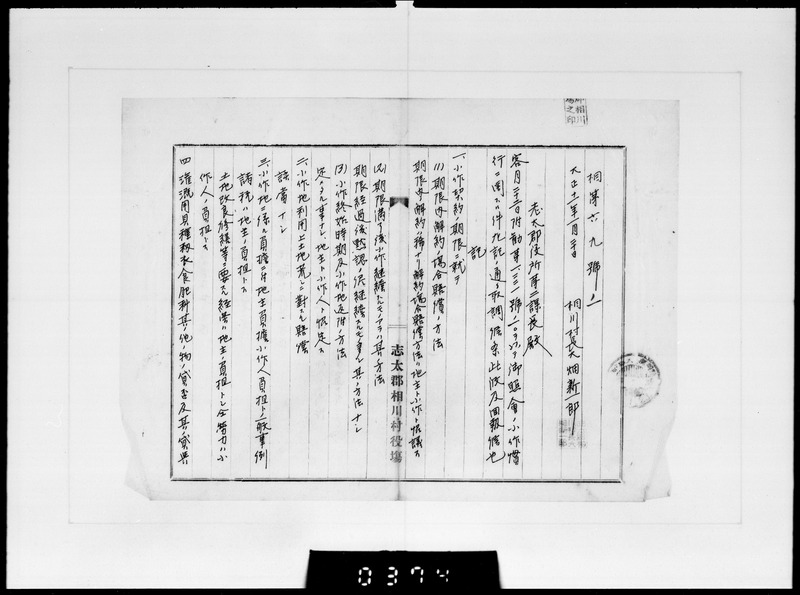 相第六九號ノ一
大正十一年一月三十日
相川村長大畑新一郎
志太郡役所第二課長殿
客月二十三日附勧第一三二一號ノ 以テ御照會ノ小作慣
行ニ関スル件左記ノ通リ取調候条此段及回報候也
記
一、小作契約期限ニ就テ
(1)期限内解約ノ場合賠償ノ方法
期限内解約ハ稀ナリ解約ノ場合賠償方法ハ地主ト小作ト協議ス
(2)期限満了後小作継續スルモノアラハ其ノ方法
期限経過後黙認ノ侭継續スルモ事ノ其ノ方法ナシ
(3)小作終始時期及小作地返附ノ方法
定マリタル事ナシ地主ト小作人ト協定ス
二、小作地利用上土地荒シニ對スル賠償
該當ナシ
三、小作地ニ係ル負擔ニ付地主負擔小作人負担トノ一般事例
諸税ハ地主ノ負担トス
土地改良修繕等ニ要スル経費ハ地主ノ負担トシ全労力ハ小
作人ノ負担トス
四 灌漑用具種籾衣食肥料其ノ他ノ物ノ貸否及其ノ貸與
志太郡相川村役場
0374